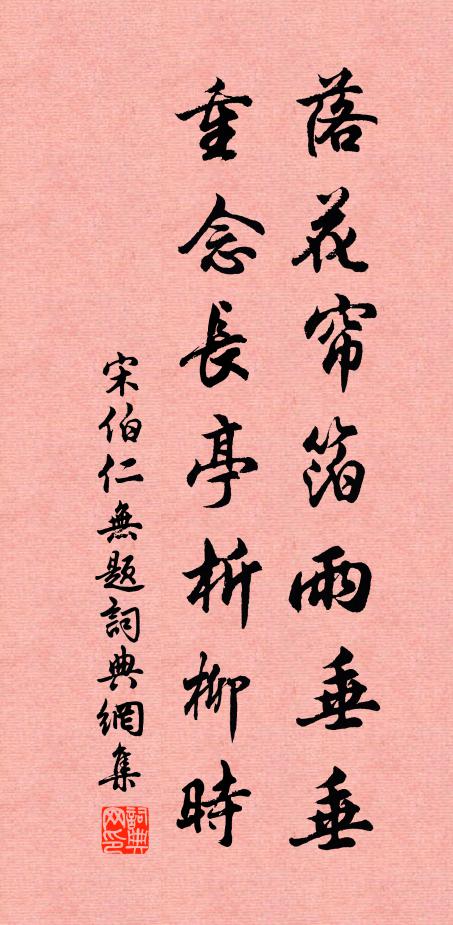 落花帘箔雨垂垂
重念長亭折柳時
宋伯仁無題詞典網集
詞典網印